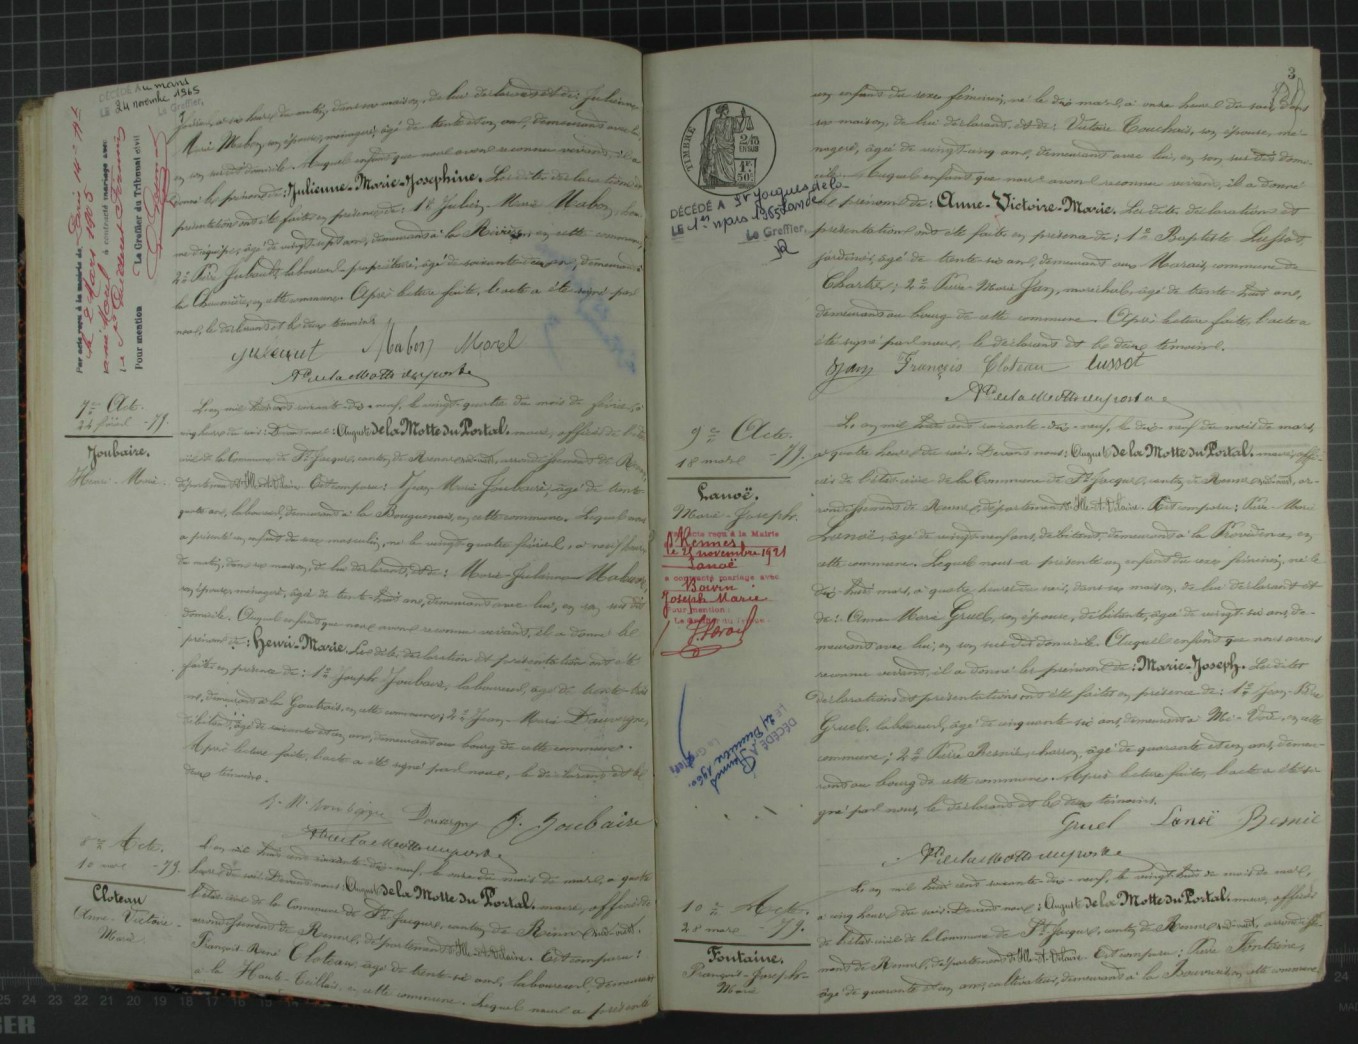 DÉCÉDÉ Au mans
LE 24 novembre 1965
Le Greffier,
Par acte reçu à la mairie de Paris 14e
le 2 Mars 1905
a contracté mariage avec
Pour mention La Greffier du Tribunal civil
février, à six heures du matin, dans sa maison, de lui déclarant et de: Julienne
Marie Mabon, son épouse, ménagère, âgée de trente et un ans, demeurant avec lui
en son susdit domicile. Auquel enfant que nous avons reconnu vivant, il a
donné les prénoms de: Julienne-Marie-Joséphine. Lesdites déclaration et
présentation ont été faites en présence de: 1º Julien Marie Mabon,
âgé de vingt sept ans, demeurant à la en cette commune,
2º laboureur propriétaire, âgé de soixante ans, demeurant
en cette commune. Après lecture faite, l'acte a été signé par
nous, le déclarant et les deux témoins.
Mabon Morel
A de la Motte duportal
7e Acte.
24 février -79.
Joubaire,
Henri-Marie.
L'an mil huit cent soixante-dix-neuf, le vingt-quatre du mois de février, à
cinq heures du soir. Devant nous: Auguste de la Motte du Portal, maire, officier de l'état
civil de la Commune de St Jacques, canton de Rennes sud-ouest, arrondissement de Rennes,
département d'Ille-et-Vilaine. Est comparu: Jean Marie Joubaire, âgé de trente
quatre ans, laboureur, demeurant à la Bouguenais, en cette commune. Lequel nous
a présenté un enfant du sexe masculin, né le vingt quatre février, à neuf heures
du matin, dans sa maison, de lui déclarant, et de: Marie-Julienne Mabon,
son épouse, ménagère, âgée de trente-trois ans, demeurant avec lui, en son susdit
domicile. Auquel enfant que nous avons reconnu vivant, il a donné les
prénoms de: Henri-Marie. Lesdites déclaration et présentation ont été
faites en présence de: 1º Joseph Joubaire, laboureur, âgé de trente-trois
ans, demeurant à la Gautrais en cette commune; 2º Jean-Marie Dauvergne,
débitant, âgé de soixante et un ans, demeurant au bourg de cette commune.
Après lecture faite, l'acte a été signé par nous, le déclarant et les
deux témoins.
Dauvergne J. Joubaire
A de la Motte duportal
8e Acte.
10 mars -79.
Cloteau
Anne-Victoire-
Marie.
L'an mil huit cent soixante-dix-neuf, le onze du mois de mars, à quatre
heures du soir. Devant nous: Auguste de la Motte du Portal, maire, officier de
l'état civil de la Commune de St Jacques, canton de Rennes sud-ouest,
arrondissement de Rennes, département d'Ille-et-Vilaine. Est comparu:
François-René Cloteau, âgé de trente-six ans, laboureur, demeurant
à la Haute en cette commune. Lequel nous a présenté
3
TIMBRE
1F.
50c
DÉCÉDÉ A St Jacques de la Lande
LE 1er mars 1965
Le Greffier,
un enfant du sexe féminin, né le dix mars, à onze heures du soir, dans
sa maison, de lui déclarant, et de: Victoire Couchois, son épouse, mé-
nagère, âgée de vingt cinq ans, demeurant avec lui, en son susdit domi-
cile. Auquel enfant que nous avons reconnu vivant, il a donné
les prénoms de: Anne-Victoire-Marie. Lesdites déclaration et
présentation ont été faites en présence de: 1º Baptiste Lussot,
jardinier, âgé de trente six ans, demeurant aux Marais, commune de
Chartres; 2º Pierre-Marie Jan, maréchal, âgé de trente trois ans,
demeurant au bourg de cette commune. Après lecture faite, l'acte a
été signé par nous, le déclarant et les deux témoins.
Jan François Cloteau Lussot
A de la Motte duportal
9e Acte.
18 mars -79.
Lanoë.
Marie-Joseph.
Par acte reçu à la Mairie
d Rennes
le 21 novembre 1921
Lanoë
a contracté mariage avec
Boivin
Joseph Marie
Pour mention:
DÉCÉDÉ A Rennes
LE 21 1960
L'an mil huit cent soixante-dix-neuf, le dix-neuf du mois de mars,
à quatre heures du soir. Devant nous: Auguste de la Motte du Portal, maire, offi-
cier de l'état-civil de la Commune de St Jacques, canton de Rennes sud-ouest, ar-
rondissement de Rennes, département d'Ille-et-Vilaine. Est comparu: Pierre Marie
Lanoë, âgé de vingt neuf ans, débitant, demeurant à la Providence, en
cette commune. Lequel nous a présenté un enfant du sexe féminin, né le
dix huit mars, à quatre heures du soir, dans sa maison, de lui déclarant et
de: Anne Marie Gruel, son épouse, débitante, âgée de vingt-six ans, de-
meurant avec lui, en son susdit domicile. Auquel enfant que nous avons
reconnu vivant, il a donné les prénoms de: Marie-Joseph. Lesdites
déclaration et présentation ont été faites en présence de: 1º Jean-Bte
Gruel, laboureur, âgé de cinquante six ans, demeurant à Mi-Voie, en cette
commune; 2º Pierre Besnié, charron, âgé de quarante et un ans, demeu-
rant au bourg de cette commune. Après lecture faite, l'acte a été si-
gné par nous, le déclarant et les deux témoins.
Gruel Lanoë Besnié
A de la Motte duportal
10e Acte.
28 mars -79.
Fontaine,
François-Joseph-
Marie
L'an mil huit cent soixante-dix-neuf, le vingt-huit du mois de mars,
à cinq heures du soir. Devant nous: Auguste de la Motte du Portal, maire, officier
de l'état-civil de la Commune de St Jacques, canton de Rennes sud-ouest, arrondisse-
ment de Rennes, département d'Ille-et-Vilaine. Est comparu: Pierre Fontaine,
âgé de quarante et un ans, cultivateur, demeurant à la en cette commune